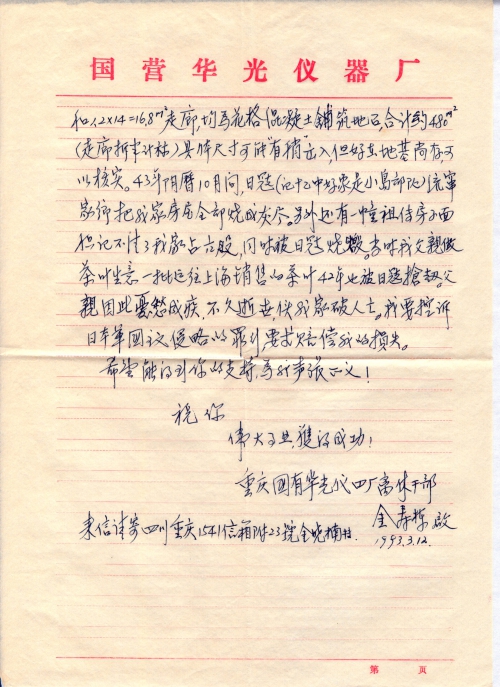 国营华光仪器厂
和1.2×14=16.8m²走廊,均为花格混凝土铺筑地面,合计约480m²
(走廊折半计核)具体尺寸可能有稍出入,但好在地基尚存可
以核实。43年阴历10月间,日寇(记忆中好象是小岛部队)流窜
家乡把我家房屋全部烧成灰尽。另外还有一幢祖住房,面
积记不清了我家占六股,同时被日寇烧毁。当时我父亲做
茶叶生意一批运往上海销售的茶叶42年也被日寇抢劫。父
亲因此忧愁成疾,不久逝世,使我家破人亡。我要控诉
日本军国主义侵略的罪行要求赔偿我的损失。
希望能得到你的支持,为我声张正义!
祝你
伟大事业,获得成功!
重庆国有华光仪四厂离休干部
金寿 启
来信请寄四川重庆1541信箱附23号金晓楠转
1993.3.12.
第 页